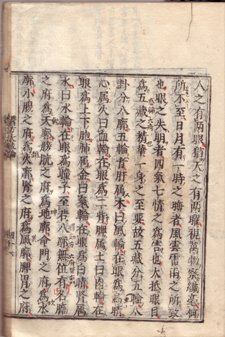 人之有兩眼猶天之有兩曜視萬物察纖毫何
所不至日月有一時之晦者風雲雷雨之所致
也眼之失明者四氣七情之為害也大抵眼目
為五臟之精華一身之至要故五臟分五輪八
卦分八廓五輪者肝屬木曰風輪在眼為烏睛
心屬火曰血輪在眼為二眥脾屬土曰肉輪在
眼為上下胞肺屬金曰氣輪在眼為白睛腎屬
水曰水輪在眼為瞳子至若八廓無位有名膽
之府為天廓膀胱之府為地廓命門之府為水
廓小腸之府為火廓腎之府為風廓脾胃之府